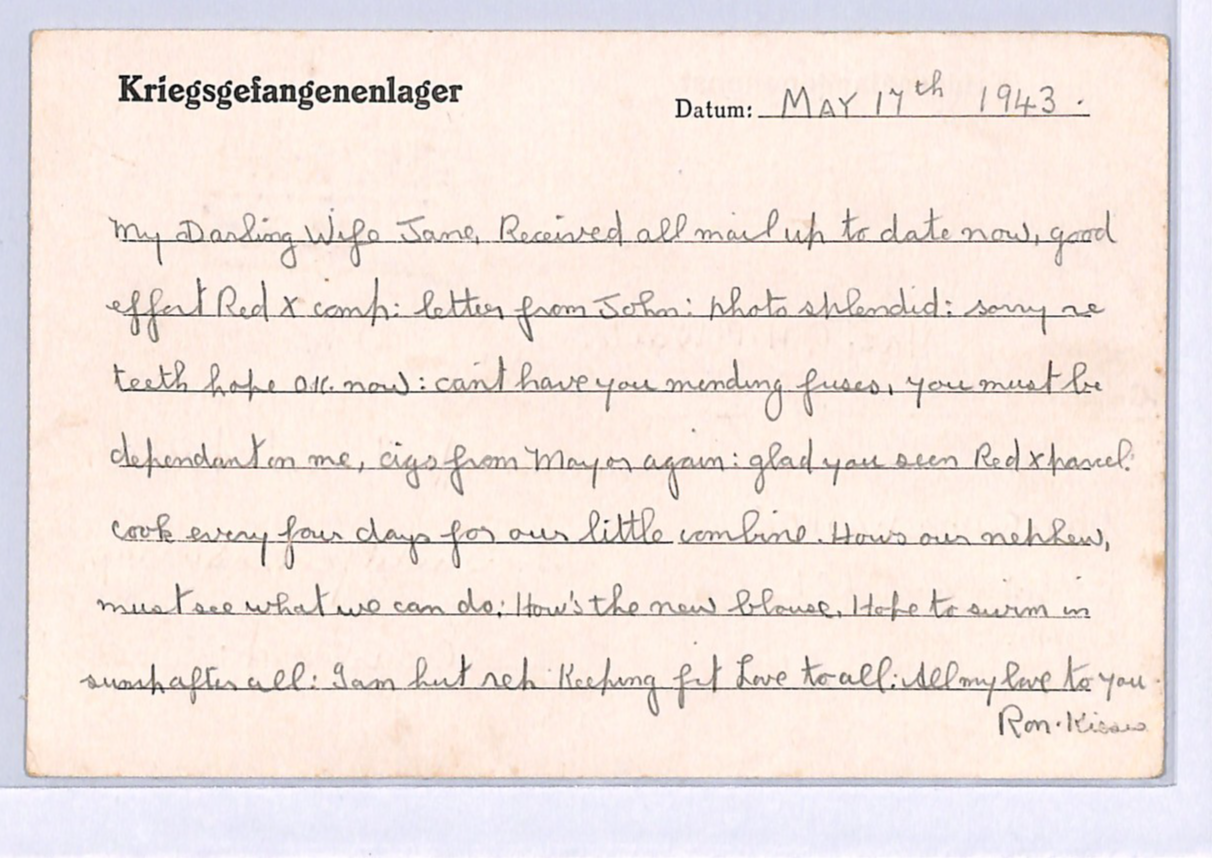 Kriegsgefangenenlager
Datum: MAY 17th 1943.
My Darling Wife Jane, Received all mail up to date now, good
effort Red X comp: letter from John: photo splendid: sorry re
teeth hope O.K. now: can't have you mending fuses, you must be
dependant on me, cigs from Mayor again: glad you seen Red X parcel:
cook every four days for our little combine. Hows our nephew,
must see what we can do: How's the new blouse. Hope to swim in
after all: I am hut rep Keeping fit Love to all: All my love to you
Ron. Kisses